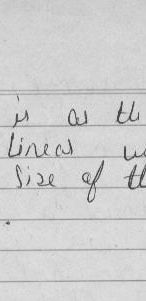 is as the
lines w
size of th
.